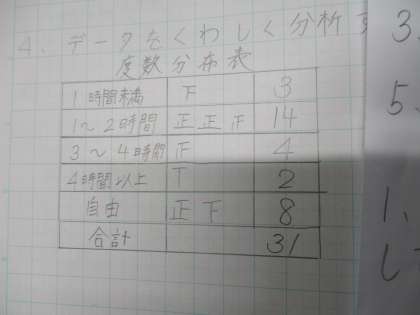 4. データをくわしく分析す
度数分布表
1時間未満 下 3
1~2時間 正正正 14
3~4時間 正 4
4時間以上 T 2
自由 正下 8
合計 31
3.
5.
1、
し